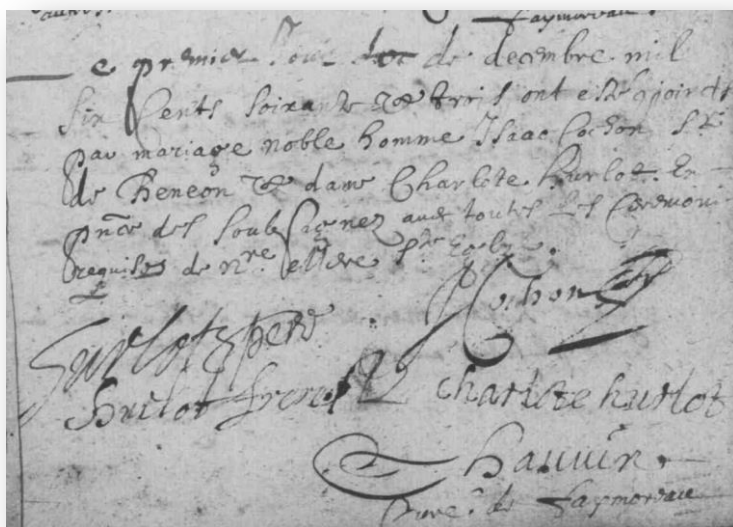 faymoreau
e premier Jour de decembre mil
six Cents soixante & trois ont esté conjoincts
par mariage noble homme Isaac Cochon Sr
de Feneon & dame Charlote hurlot. En
pnce des Soubsignez avec toutes les Ceremoni
requises de nre mere Ste Eglise.
ICochon
hurlot pere
hurlot frere
charlote hurlot
Chauvin.
Curé de faymoreau